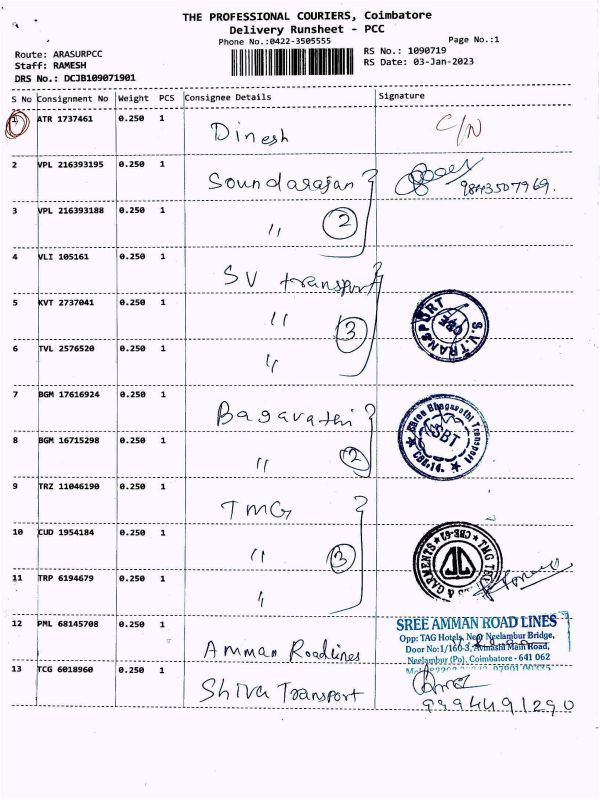 THE PROFESSIONAL COURIERS, Coimbatore
Delivery Runsheet - PCC
Phone No.:0422-3505555
Page No.:1
Route: ARASURPCC
RS No.: 1090719
Staff: RAMESH
RS Date: 03-Jan-2023
DRS No.: DCJB109071901
S No Consignment No Weight PCS Consignee Details Signature
1 ATR 1737461 0.250 1 Dinesh C/N
2 VPL 216393195 0.250 1 Soundarajan 9843507969.
3 VPL 216393188 0.250 1 〃 2
4 VLI 105161 0.250 1 SV transport
5 KVT 2737041 0.250 1 〃 3 S.V.TRANSPORT CBE
6 TVL 2576520 0.250 1 〃
7 BGM 17616924 0.250 1 Bagavathi Shree Bhagavathi Transport
8 BGM 16715298 0.250 1 〃 2 SBT Cbe-14.
9 TRZ 11046190 0.250 1 TMG
10 CUD 1954184 0.250 1 〃 3 CBE-62 TMG & GARMENTS
11 TRP 6194679 0.250 1 〃
12 PML 68145708 0.250 1 Amman Roadlines
SREE AMMAN ROAD LINES
Opp: TAG Hotels, Near Neelambur Bridge,
Door No:1/160-3, Avinashi Main Road,
Neelambur (Po), Coimbatore - 641 062
13 TCG 6018960 0.250 1 Shiva Transport
9994491290